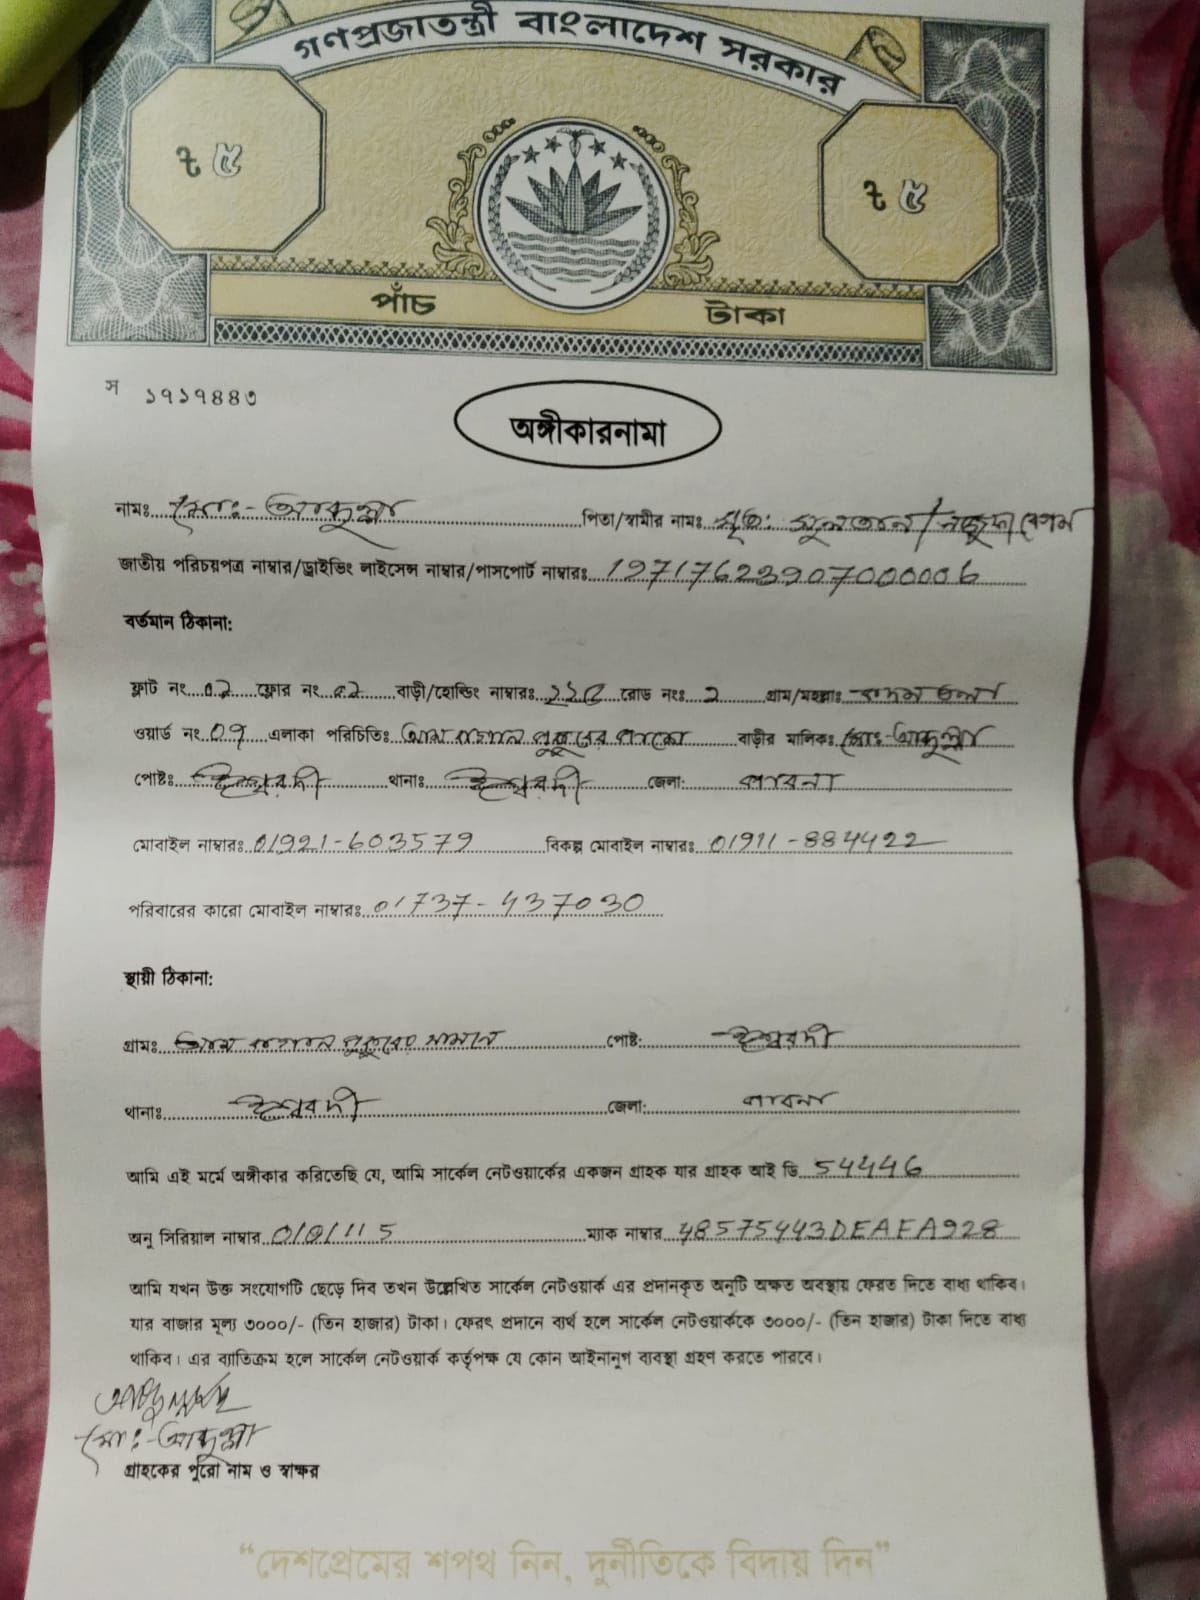 গণপ্রজাতন্ত্রী বাংলাদেশ সরকার
৳ ৫ ৳ ৫
পাঁচ টাকা
স ১৭১৭৪৪৩
অঙ্গীকারনামা
নামঃ মোঃ- আব্দুল্লা পিতা/স্বামীর নামঃ মৃতঃ সুলতান / বেগম
জাতীয় পরিচয়পত্র নাম্বার/ড্রাইভিং লাইসেন্স নাম্বার/পাসপোর্ট নাম্বারঃ 19717623907000006
বর্তমান ঠিকানা:
ফ্লাট নং ০২ ফ্লোর নং ০২ বাড়ী/হোল্ডিং নাম্বারঃ রোড নংঃ ২ গ্রাম/মহল্লাঃ
ওয়ার্ড নং ০৭ এলাকা পরিচিতিঃ আম বাগান পুকুরের পাশে বাড়ীর মালিকঃ মোঃ-আব্দুল্লা
পোষ্টঃ ঈশ্বরদী থানাঃ ঈশ্বরদী জেলা: পাবনা
মোবাইল নাম্বারঃ 01921-603579 বিকল্প মোবাইল নাম্বারঃ 01911-884422
পরিবারের কারো মোবাইল নাম্বারঃ 01737-437030
স্থায়ী ঠিকানা:
গ্রামঃ আম বাগান পুকুরের সামনে পোষ্ট: ঈশ্বরদী
থানাঃ ঈশ্বরদী জেলা: পাবনা
আমি এই মর্মে অঙ্গীকার করিতেছি যে, আমি সার্কেল নেটওয়ার্কের একজন গ্রাহক যার গ্রাহক আই ডি 54446
অনু সিরিয়াল নাম্বার 0101115 ম্যাক নাম্বার 48575443DEAFA928
আমি যখন উক্ত সংযোগটি ছেড়ে দিব তখন উল্লেখিত সার্কেল নেটওয়ার্ক এর প্রদানকৃত অনুটি অক্ষত অবস্থায় ফেরত দিতে বাধ্য থাকিব।
যার বাজার মূল্য ৩০০০/- (তিন হাজার) টাকা। ফেরৎ প্রদানে ব্যর্থ হলে সার্কেল নেটওয়ার্ককে ৩০০০/- (তিন হাজার) টাকা দিতে বাধ্য
থাকিব। এর ব্যাতিক্রম হলে সার্কেল নেটওয়ার্ক কর্তৃপক্ষ যে কোন আইনানুগ ব্যবস্থা গ্রহণ করতে পারবে।
মোঃ-আব্দুল্লা
গ্রাহকের পুরো নাম ও স্বাক্ষর
“দেশপ্রেমের শপথ নিন, দুর্নীতিকে বিদায় দিন”